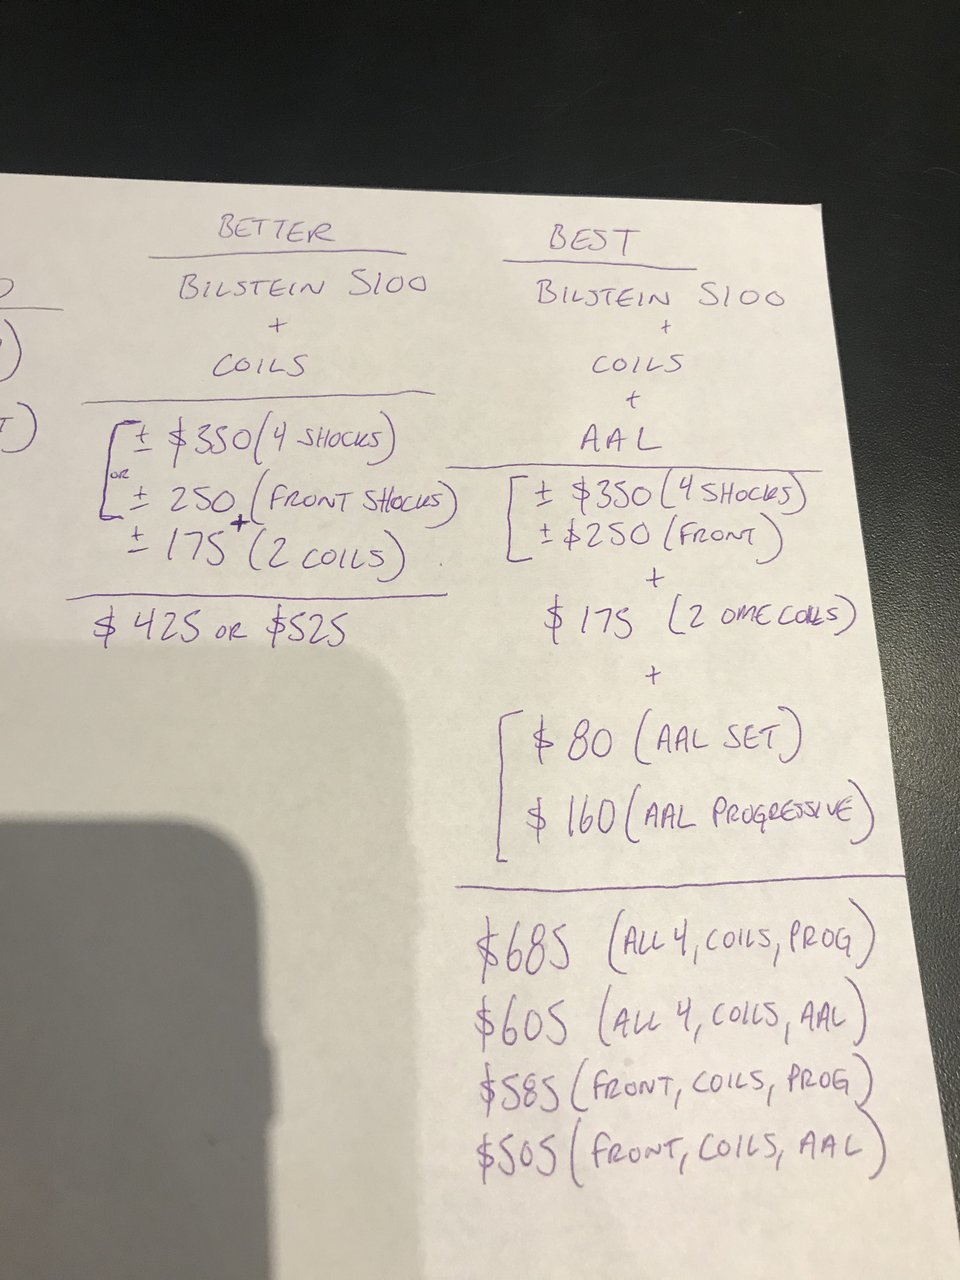 BETTER
BILSTEIN 5100
+
COILS
± $350 (4 SHOCKS)
OR
± 250 (FRONT SHOCKS)
+
± 175 (2 COILS)
$ 425 OR $525
BEST
BILSTEIN 5100
+
COILS
+
AAL
± $350 (4 SHOCKS)
± $250 (FRONT)
+
$ 175 (2 OME COILS)
+
$ 80 (AAL SET)
$ 160 (AAL PROGRESSIVE)
$685 (ALL 4, COILS, PROG)
$605 (ALL 4, COILS, AAL)
$585 (FRONT, COILS, PROG)
$505 (FRONT, COILS, AAL)